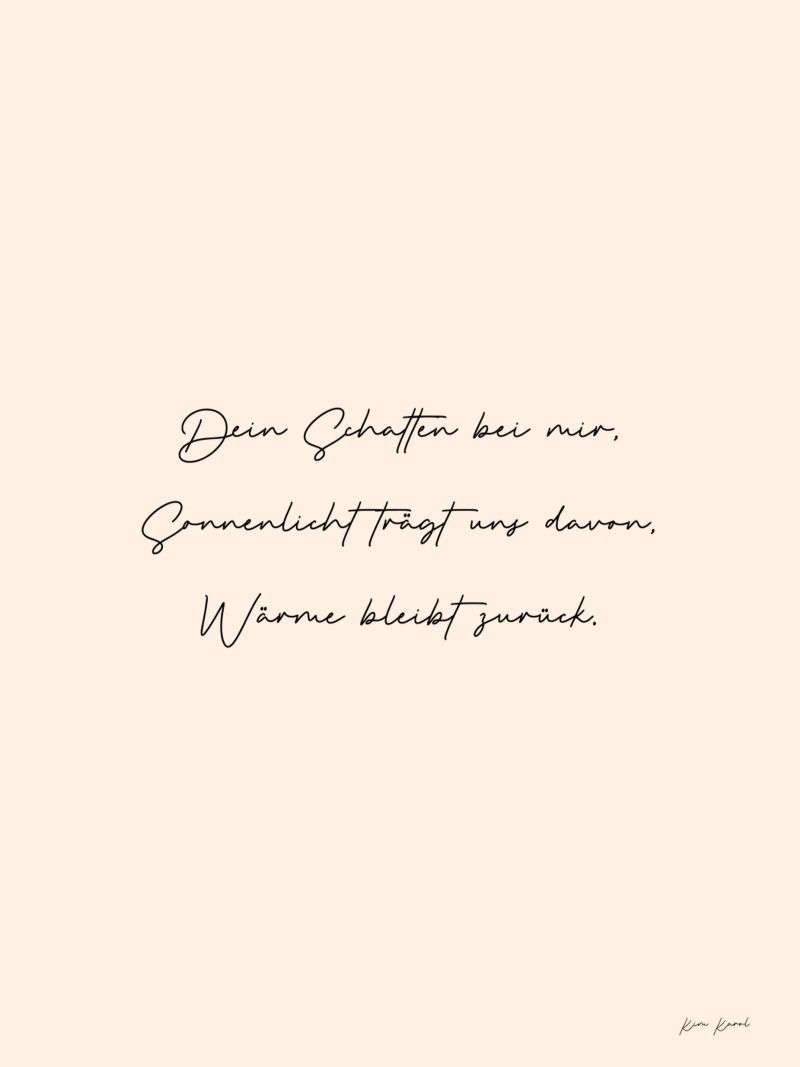 Dein Schatten bei mir,
Sonnenlicht trägt uns davon,
Wärme bleibt zurück.
Kim Karol